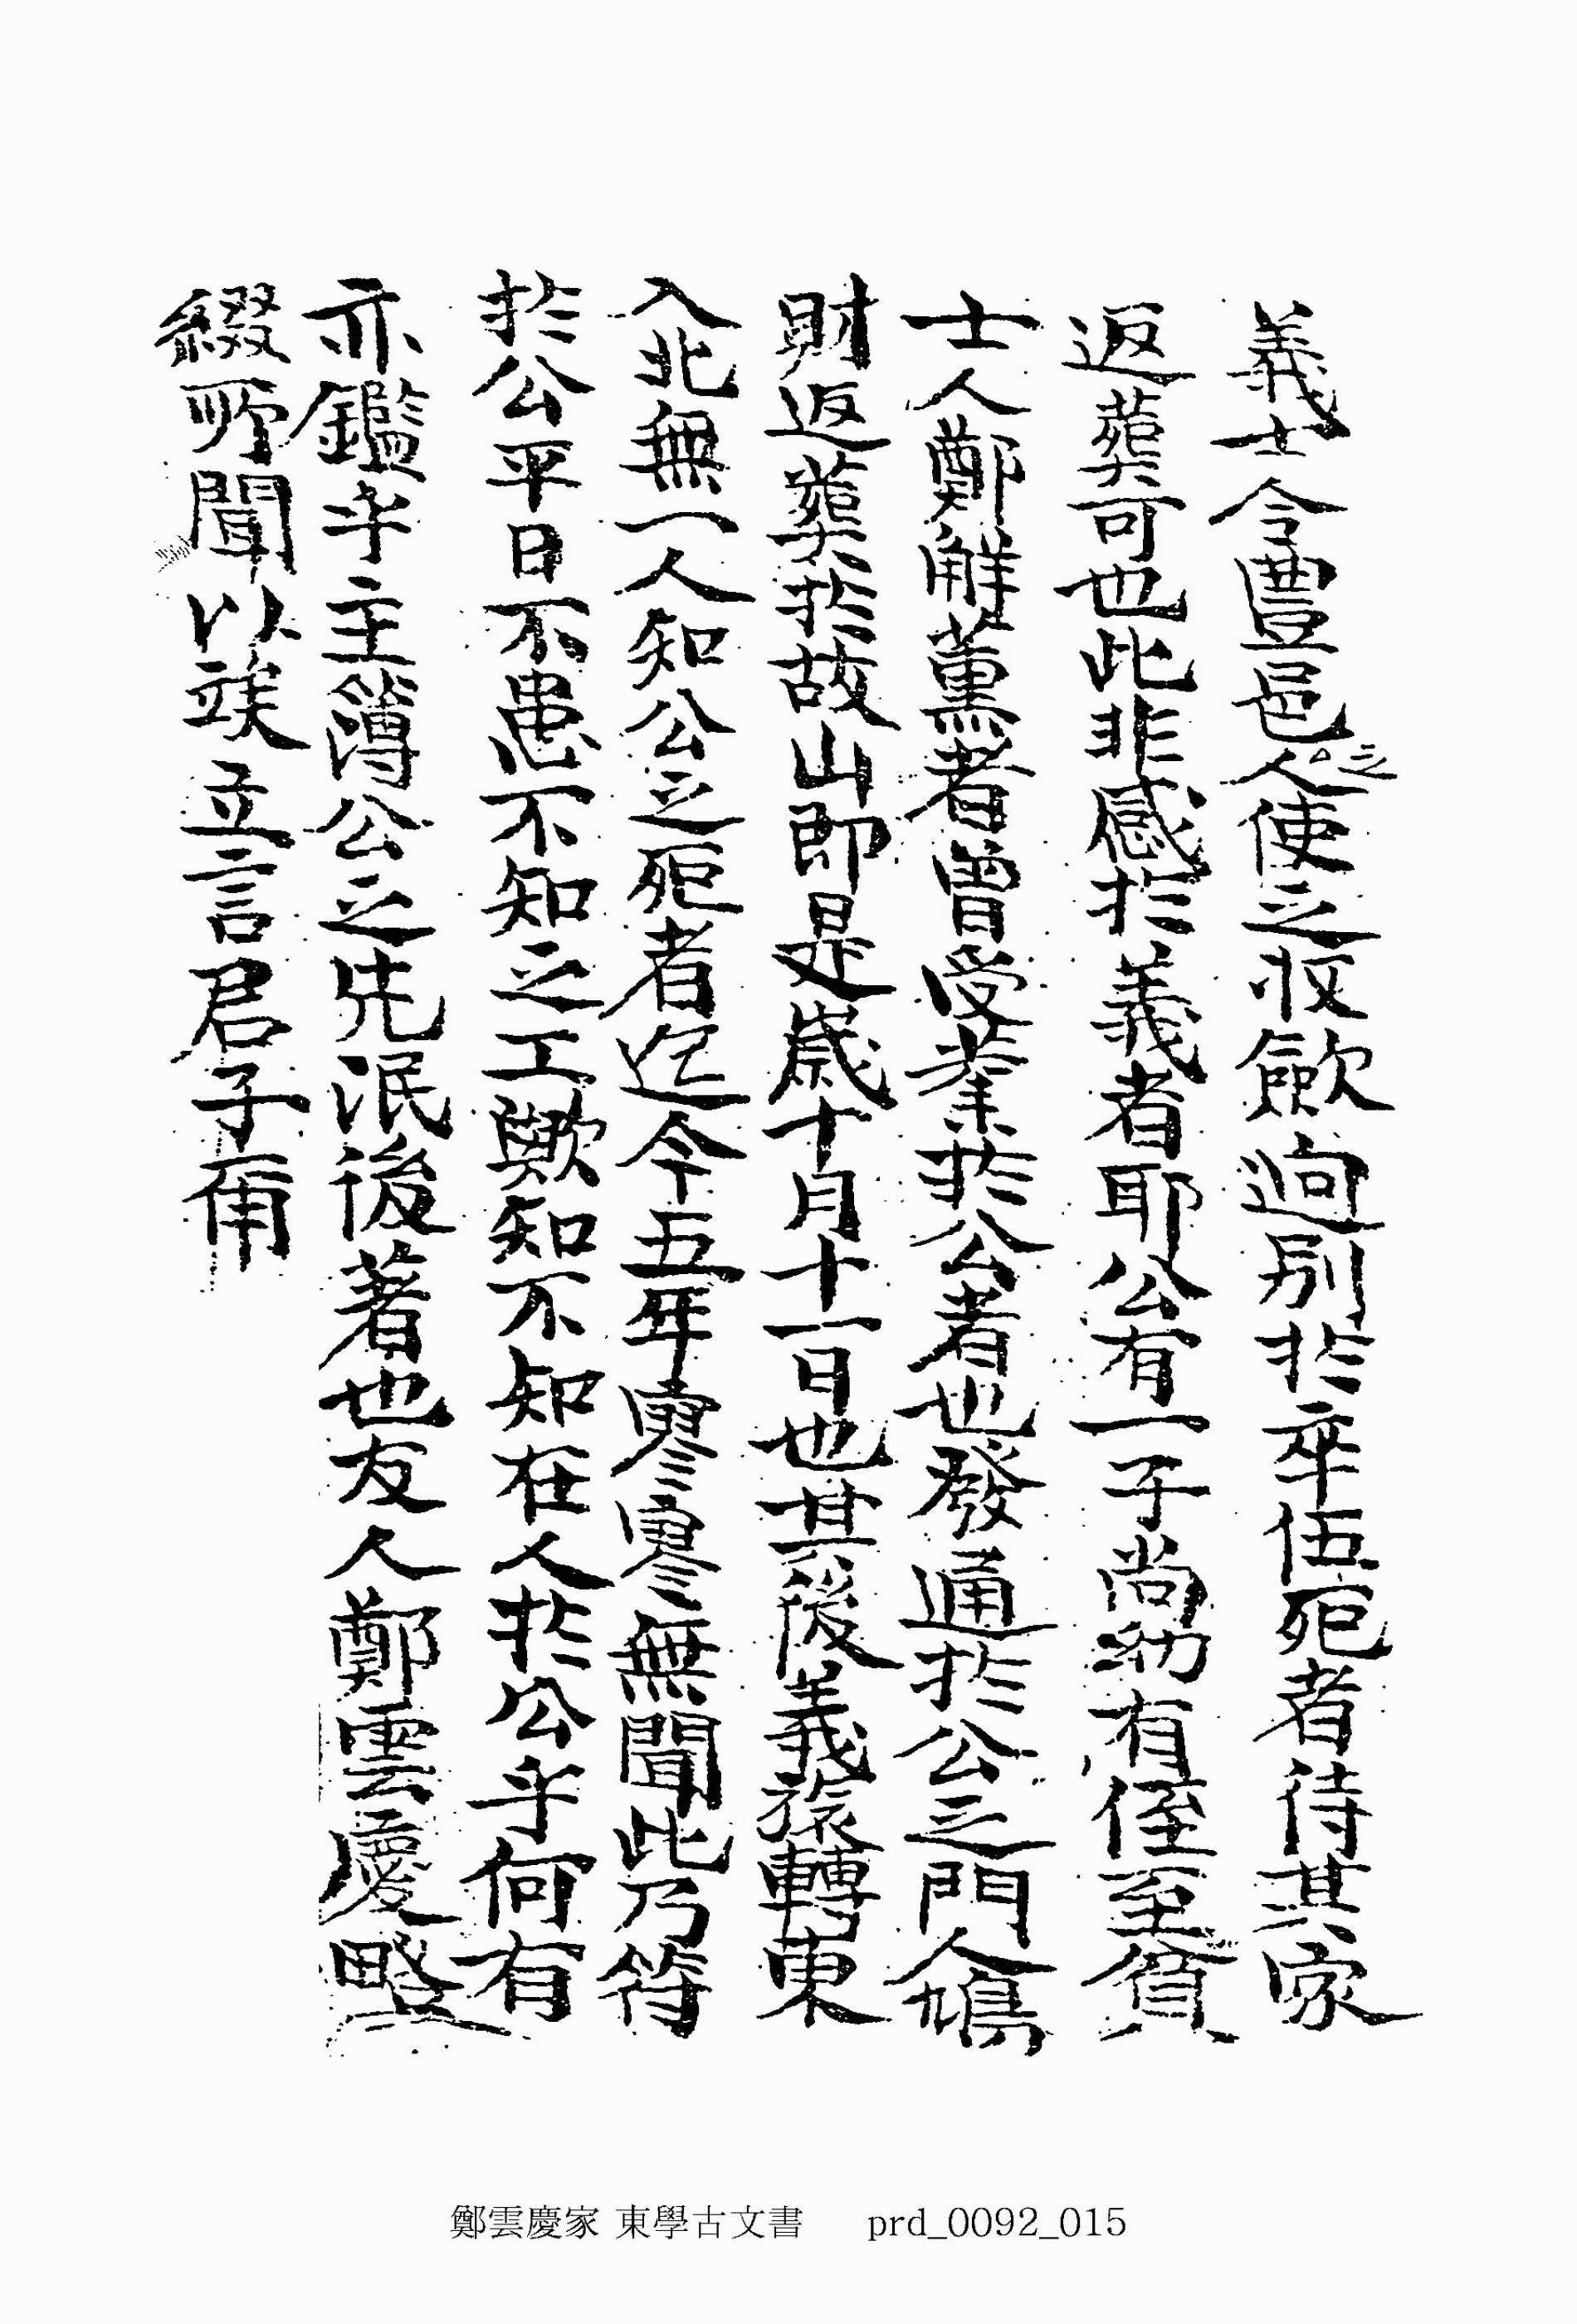 義士令豊邑人之使之收斂逈別於卒伍死者待其家
返葬可也此非感於義者耶公有一子尚幼有侄至貧
士人鄭解薰者曾受業於公者也發通於公之門人鳩
財返葬於故山即是歲十月十一日也其後義旅轉東
入北無一人知公之死者迄今五年寥寥無聞此乃符
於公平日不患不知之工歟知不知在人於公乎何有
亦鑑乎主簿公之先泯後著也友人鄭雲慶略
綴所聞以竢立言君子甭
鄭雲慶家 東學古文書 prd_0092_015